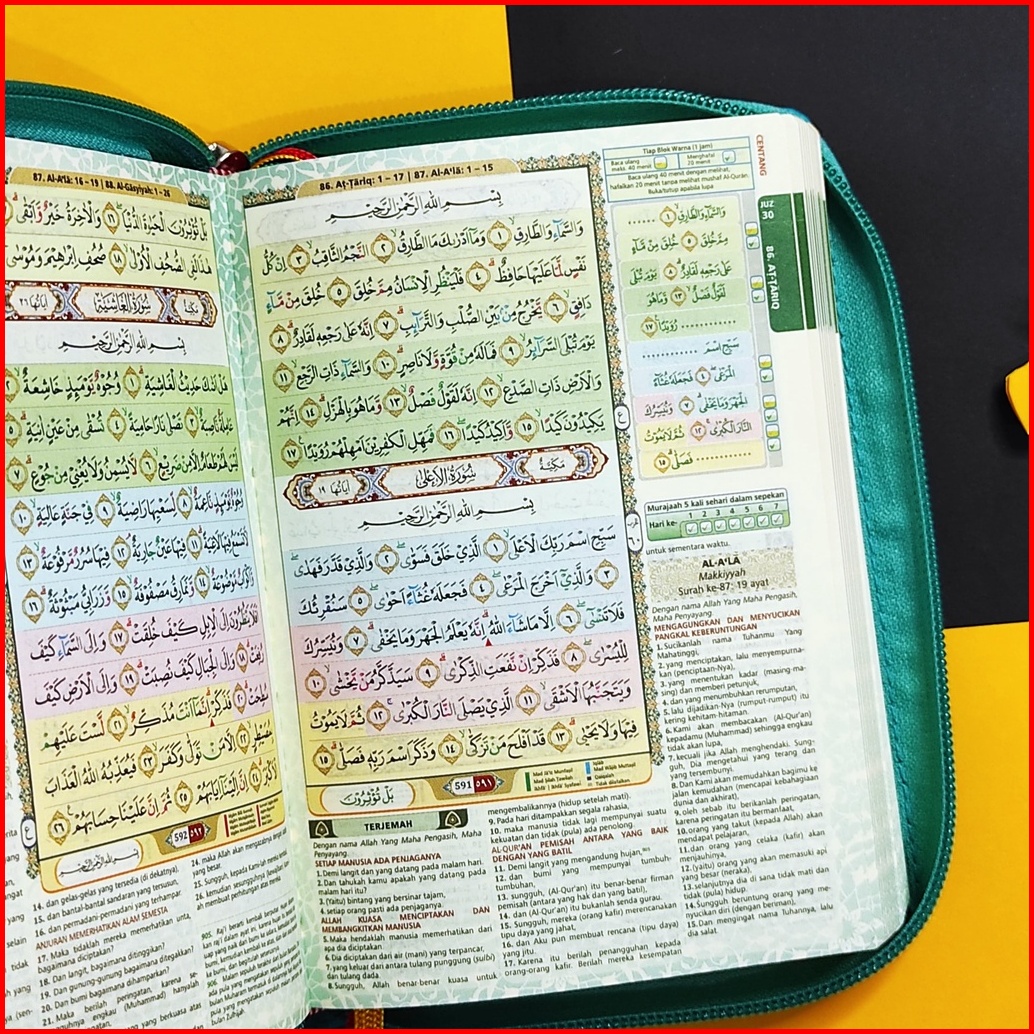 86. Aṭ-Ṭāriq: 1 – 17 | 87. Al-A'lā: 1 – 15
بِسْمِ اللّٰهِ الرَّحْمٰنِ الرَّحِيْمِ
وَالسَّمَاۤءِ وَالطَّارِقِۙ ١ وَمَآ اَدْرٰىكَ مَا الطَّارِقُۙ ٢ النَّجْمُ الثَّاقِبُۙ ٣ اِنْ كُلُّ
نَفْسٍ لَّمَّا عَلَيْهَا حَافِظٌۗ ٤ فَلْيَنْظُرِ الْاِنْسَانُ مِمَّ خُلِقَ ٥ خُلِقَ مِنْ مَّاۤءٍ
دَافِقٍۙ ٦ يَّخْرُجُ مِنْۢ بَيْنِ الصُّلْبِ وَالتَّرَاۤىِٕبِۗ ٧ اِنَّهٗ عَلٰى رَجْعِهٖ لَقَادِرٌۗ ٨
يَوْمَ تُبْلَى السَّرَاۤىِٕرُۙ ٩ فَمَا لَهٗ مِنْ قُوَّةٍ وَّلَا نَاصِرٍۗ ١٠ وَالسَّمَاۤءِ ذَاتِ الرَّجْعِۙ ١١
وَالْاَرْضِ ذَاتِ الصَّدْعِۙ ١٢ اِنَّهٗ لَقَوْلٌ فَصْلٌۙ ١٣ وَّمَا هُوَ بِالْهَزْلِۗ ١٤ اِنَّهُمْ
يَكِيْدُوْنَ كَيْدًاۙ ١٥ وَّاَكِيْدُ كَيْدًاۖ ١٦ فَمَهِّلِ الْكٰفِرِيْنَ اَمْهِلْهُمْ رُوَيْدًا ١٧
مَكِّيَّةٌ سُوْرَةُ الْاَعْلٰى اٰيَاتُهَا ١٩
بِسْمِ اللّٰهِ الرَّحْمٰنِ الرَّحِيْمِ
سَبِّحِ اسْمَ رَبِّكَ الْاَعْلَىۙ ١ الَّذِيْ خَلَقَ فَسَوّٰىۖ ٢ وَالَّذِيْ قَدَّرَ فَهَدٰىۖ
٣ وَالَّذِيْٓ اَخْرَجَ الْمَرْعٰىۖ ٤ فَجَعَلَهٗ غُثَاۤءً اَحْوٰىۖ ٥ سَنُقْرِئُكَ
فَلَا تَنْسٰىٓۖ ٦ اِلَّا مَا شَاۤءَ اللّٰهُ ۗاِنَّهٗ يَعْلَمُ الْجَهْرَ وَمَا يَخْفٰىۗ ٧ وَنُيَسِّرُكَ
لِلْيُسْرٰىۖ ٨ فَذَكِّرْ اِنْ نَّفَعَتِ الذِّكْرٰىۗ ٩ سَيَذَّكَّرُ مَنْ يَّخْشٰىۙ ١٠
وَيَتَجَنَّبُهَا الْاَشْقَىۙ ١١ الَّذِيْ يَصْلَى النَّارَ الْكُبْرٰىۚ ١٢ ثُمَّ لَا يَمُوْتُ
فِيْهَا وَلَا يَحْيٰىۗ ١٣ قَدْ اَفْلَحَ مَنْ تَزَكّٰىۙ ١٤ وَذَكَرَ اسْمَ رَبِّهٖ فَصَلّٰىۗ ١٥
بَلْ تُؤْثِرُوْنَ
591 ٥٩١
Tiap Blok Warna (1 jam)
Baca ulang maks. 40 menit
Menghafal 20 menit
Baca ulang 40 menit dengan melihat,
hafalkan 20 menit tanpa melihat mushaf Al-Qur'an.
Buka/tutup apabila lupa
CENTANG
JUZ
30
86. AṬ-ṬĀRIQ
وَالسَّمَاۤءِ وَالطَّارِقِۙ ١ ............
مِمَّ خُلِقَ ٥ خُلِقَ مِنْ مَّاۤءٍ
عَلٰى رَجْعِهٖ لَقَادِرٌۗ ٨ يَوْمَ تُبْلَى
لَقَوْلٌ فَصْلٌۙ ١٣ وَّمَا هُوَ
............ رُوَيْدًا ١٧
سَبِّحِ اسْمَ ............
الْمَرْعٰىۖ ٤ فَجَعَلَهٗ غُثَاۤءً
الْجَهْرَ وَمَا يَخْفٰىۗ ٧ وَنُيَسِّرُكَ
النَّارَ الْكُبْرٰىۚ ١٢ ثُمَّ لَا يَمُوْتُ
............ فَصَلّٰىۗ ١٥
Murajaah 5 kali sehari dalam sepekan
Hari ke- 1 2 3 4 5 6 7
TERJEMAH
Dengan nama Allah Yang Maha Pengasih, Maha
Penyayang.
SETIAP MANUSIA ADA PENJAGANYA
1.Demi langit dan yang datang pada malam hari.
2.Dan tahukah kamu apakah yang datang pada
malam hari itu?
3.(Yaitu) bintang yang bersinar tajam,
4.setiap orang pasti ada penjaganya.
ALLAH KUASA MENCIPTAKAN DAN
MEMBANGKITKAN MANUSIA
5.Maka hendaklah manusia memerhatikan dari
apa dia diciptakan.
6.Dia diciptakan dari air (mani) yang terpancar,
7.yang keluar dari antara tulang punggung (sulbi)
dan tulang dada.
8.Sungguh, Allah benar-benar kuasa untuk
mengembalikannya (hidup setelah mati).
9.Pada hari ditampakkan segala rahasia,
10. maka manusia tidak lagi mempunyai suatu
kekuatan dan tidak (pula) ada penolong.
AL-QUR'AN PEMISAH ANTARA YANG BAIK
DENGAN YANG BATIL
11. Demi langit yang mengandung hujan,
12. dan bumi yang mempunyai tumbuh-
tumbuhan,
13. sungguh, (Al-Qur'an) itu benar-benar firman
pemisah (antara yang hak dan yang batil),
14. dan (Al-Qur'an) itu bukanlah senda gurau.
15. Sungguh, mereka (orang kafir) merencanakan
tipu daya yang jahat,
16. dan Aku pun membuat rencana (tipu daya)
yang jitu.
17. Karena itu berilah penangguhan kepada
orang-orang kafir. Berilah mereka kesempatan
untuk sementara waktu.
AL-A'LĀ
Makkiyyah
Surah ke-87: 19 ayat
Dengan nama Allah Yang Maha Pengasih,
Maha Penyayang.
MENGAGUNGKAN DAN MENYUCIKAN
PANGKAL KEBERUNTUNGAN
1.Sucikanlah nama Tuhanmu Yang
Mahatinggi,
2.yang menciptakan, lalu menyempurna-
kan (penciptaan-Nya),
3.yang menentukan kadar (masing-ma-
sing) dan memberi petunjuk,
4.dan yang menumbuhkan rerumputan,
5.lalu dijadikan-Nya (rumput-rumput) itu
kering kehitam-hitaman.
6.Kami akan membacakan (Al-Qur'an)
kepadamu (Muhammad) sehingga engkau
tidak akan lupa,
7.kecuali jika Allah menghendaki. Sung-
guh, Dia mengetahui yang terang dan
yang tersembunyi.
8.Dan Kami akan memudahkan bagimu ke
jalan kemudahan (mencapai kebahagiaan
dunia dan akhirat),
9.oleh sebab itu berikanlah peringatan,
karena peringatan itu bermanfaat,
10.orang yang takut (kepada Allah) akan
mendapat pelajaran,
11.dan orang yang celaka (kafir) akan
menjauhinya,
12.(yaitu) orang yang akan memasuki api
yang besar (neraka),
13.selanjutnya dia di sana tidak mati dan
tidak (pula) hidup.
14.Sungguh beruntung orang yang me-
nyucikan diri (dengan beriman),
15.Dan mengingat nama Tuhannya, lalu
dia salat.
87. Al-A'lā: 16 – 19 | 88. Al-Gāsyiyah: 1 – 26
بَلْ تُؤْثِرُوْنَ الْحَيٰوةَ الدُّنْيَاۖ ١٦ وَالْاٰخِرَةُ خَيْرٌ وَّاَبْقٰىۗ
هٰذَا لَفِى الصُّحُفِ الْاُوْلٰىۙ ١٨ صُحُفِ اِبْرٰهِيْمَ وَمُوْسٰى
مَكِّيَّةٌ سُوْرَةُ الْغَاشِيَةِ اٰيَاتُهَا ٢٦
بِسْمِ اللّٰهِ الرَّحْمٰنِ الرَّحِيْمِ
هَلْ اَتٰىكَ حَدِيْثُ الْغَاشِيَةِۗ ١ وُجُوْهٌ يَّوْمَىِٕذٍ خَاشِعَةٌۙ ٢
عَامِلَةٌ نَّاصِبَةٌۙ ٣ تَصْلٰى نَارًا حَامِيَةًۙ ٤ تُسْقٰى مِنْ عَيْنٍ اٰنِيَةٍۗ ٥
لَيْسَ لَهُمْ طَعَامٌ اِلَّا مِنْ ضَرِيْعٍۙ ٦ لَّا يُسْمِنُ وَلَا يُغْنِيْ مِنْ جُوْعٍۗ ٧
وُجُوْهٌ يَّوْمَىِٕذٍ نَّاعِمَةٌۙ ٨ لِّسَعْيِهَا رَاضِيَةٌۙ ٩ فِيْ جَنَّةٍ عَالِيَةٍۙ ١٠
لَّا تَسْمَعُ فِيْهَا لَاغِيَةًۗ ١١ فِيْهَا عَيْنٌ جَارِيَةٌۘ ١٢ فِيْهَا سُرُرٌ مَّرْفُوْعَةٌۙ ١٣
وَّاَكْوَابٌ مَّوْضُوْعَةٌۙ ١٤ وَّنَمَارِقُ مَصْفُوْفَةٌۙ ١٥ وَّزَرَابِيُّ مَبْثُوْثَةٌۗ ١٦
اَفَلَا يَنْظُرُوْنَ اِلَى الْاِبِلِ كَيْفَ خُلِقَتْۗ ١٧ وَاِلَى السَّمَاۤءِ كَيْفَ
رُفِعَتْۗ ١٨ وَاِلَى الْجِبَالِ كَيْفَ نُصِبَتْۗ ١٩ وَاِلَى الْاَرْضِ كَيْفَ
سُطِحَتْۗ ٢٠ فَذَكِّرْۗ اِنَّمَآ اَنْتَ مُذَكِّرٌۗ ٢١ لَسْتَ عَلَيْهِمْ
بِمُصَيْطِرٍۙ ٢٢ اِلَّا مَنْ تَوَلّٰى وَكَفَرَۙ ٢٣ فَيُعَذِّبُهُ اللّٰهُ الْعَذَابَ
الْاَكْبَرَۗ ٢٤ اِنَّ اِلَيْنَآ اِيَابَهُمْ ٢٥ ثُمَّ اِنَّ عَلَيْنَا حِسَابَهُمْ ٢٦
592 ٥٩٢
14. dan gelas-gelas yang tersedia (di dekatnya),
15. dan bantal-bantal sandaran yang tersusun,
16. dan permadani-permadani yang terhampar.
ANJURAN MEMERHATIKAN ALAM SEMESTA
17. Maka tidakkah mereka memerhatikan unta,
bagaimana diciptakan?
18. Dan langit, bagaimana ditinggikan?
20. Dan bumi bagaimana dihamparkan?
21. Maka berilah peringatan, karena